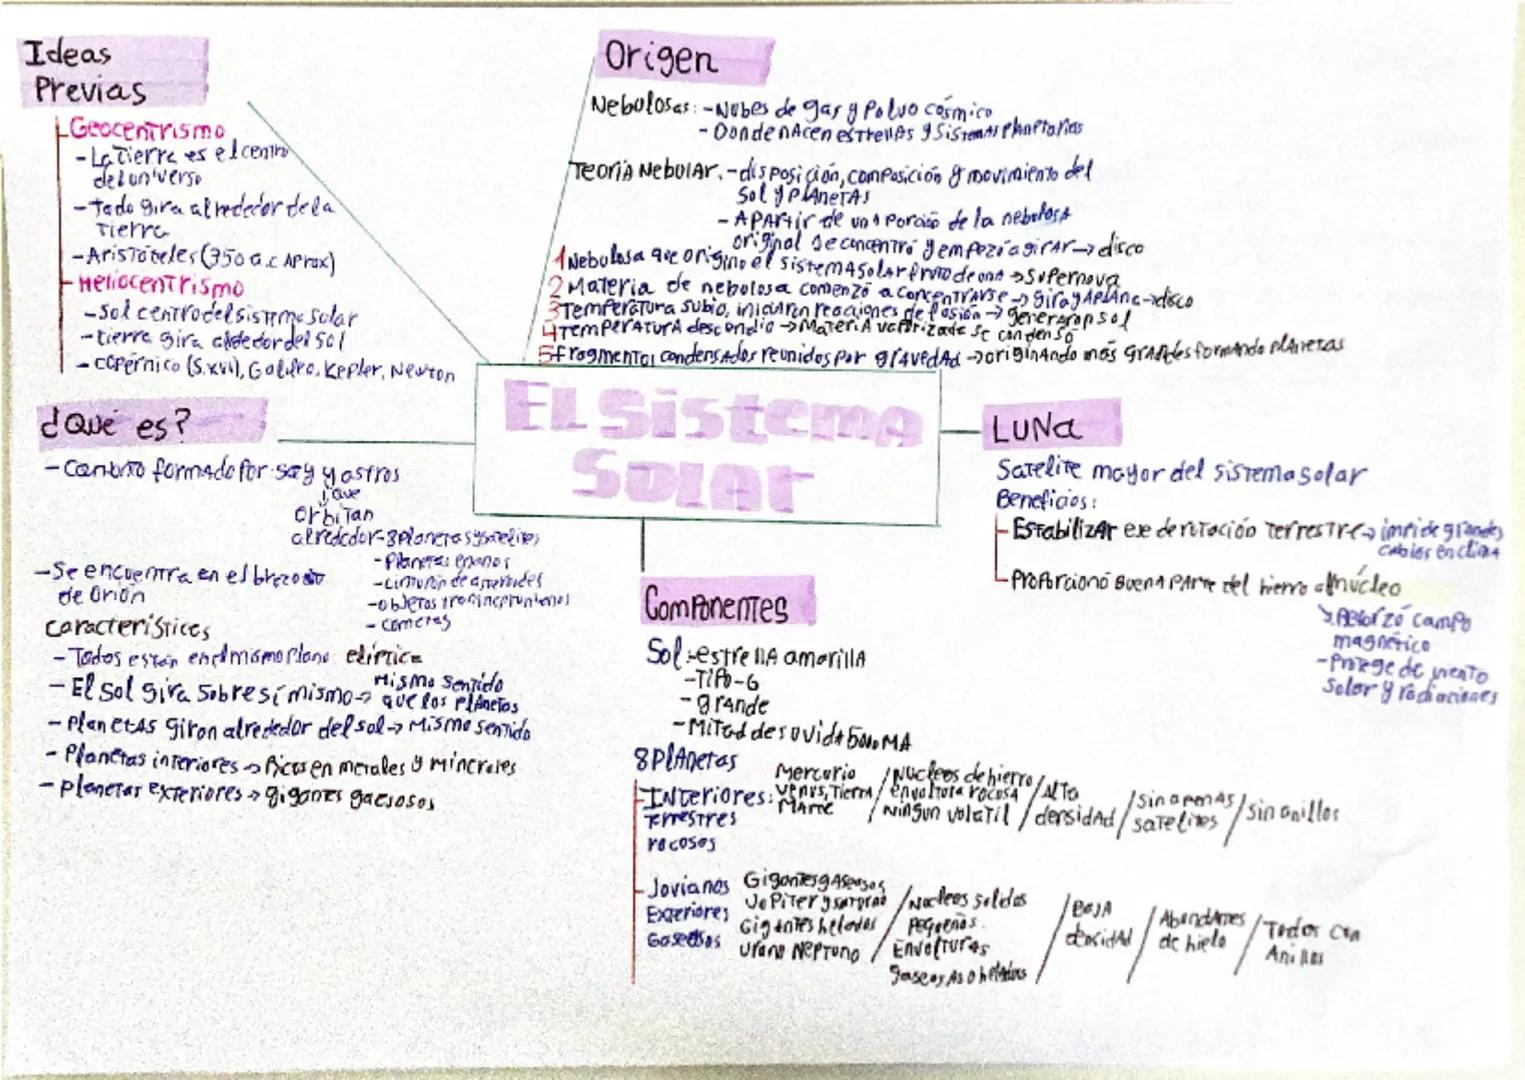 Ideas
Previas
Geocentrismo
- La Tierra es el centro
del universo
- Todo gira alrededor de la
Tierra
- Aristóteles (350 a.c Aprox)
Heliocentrismo
- Sol centro del sistema solar
- tierra gira alrededor del Sol
- copérnico (S.XVI), Galileo, Kepler, Newton
Origen
Nebulosas: - Nubes de gas y Polvo cósmico
- Donde nacen estrellas y Sistemas planetarios
Teoría Nebular. - disposición, composición y movimiento del
Sol y planetas
- A partir de una porción de la nebulosa
original se concentró y empezó a girar → disco
1 Nebulosa que origino el sistema solar fruto de una → Supernova
2 Materia de nebulosa comenzó a concentrarse → giro y aplana → disco
3 Temperatura subio, iniciaron reacciones de fosión → generaron sol
4 Temperatura descendio → Materia vaporizada se condensó
5 fragmentos condensados reunidos por gravedad → originando más grandes formando planetas
El Sistema
Solar
¿Qué es?
- formado por y astros
que
orbitan
alrededor - 8 planetas y satelites
- Planetas enanos
- cinturón de asteroides
- objetos
- cometas
- Se encuentra en el brazo
de Orión
Características
- Todos están en el mismo plano elíptica
- El Sol gira sobre sí mismo → Mismo sentido
que los planetas
- Planetas giran alrededor del sol → Mismo sentido
- Planetas interiores → Ricos en metales y minerales
- planetas exteriores → gigantes gaseosos
LUNA
Satelite mayor del sistema solar
Beneficios:
- Estabilizar eje de rotación terrestre → grandes
en clima
- Proporcionó buena parte del hierro al núcleo
↘ Reforzó campo
magnético
- Protege de viento
Solar y radiaciones
Componentes
Sol - estrella amarilla
- Tipo-G
- grande
- Mitad de su vida 5000 MA
8 planetas
Interiores: Mercurio / Nucleos de hierro / Alta
Terrestres Venus, Tierra / envoltura rocosa / densidad / sin apenas / sin anillos
rocosos Marte / Ningun volatil / satelites
Jovianos Gigantes gaseosos
Exteriores Jupiter y saturno / Nucleos solidos / Baja / Abundantes / Todos con
Gaseosos Gigantes helados / Pequeños. / densidad / de hielo / Anillos
Urano Neptuno / Envolturas
gaseosas o heladas